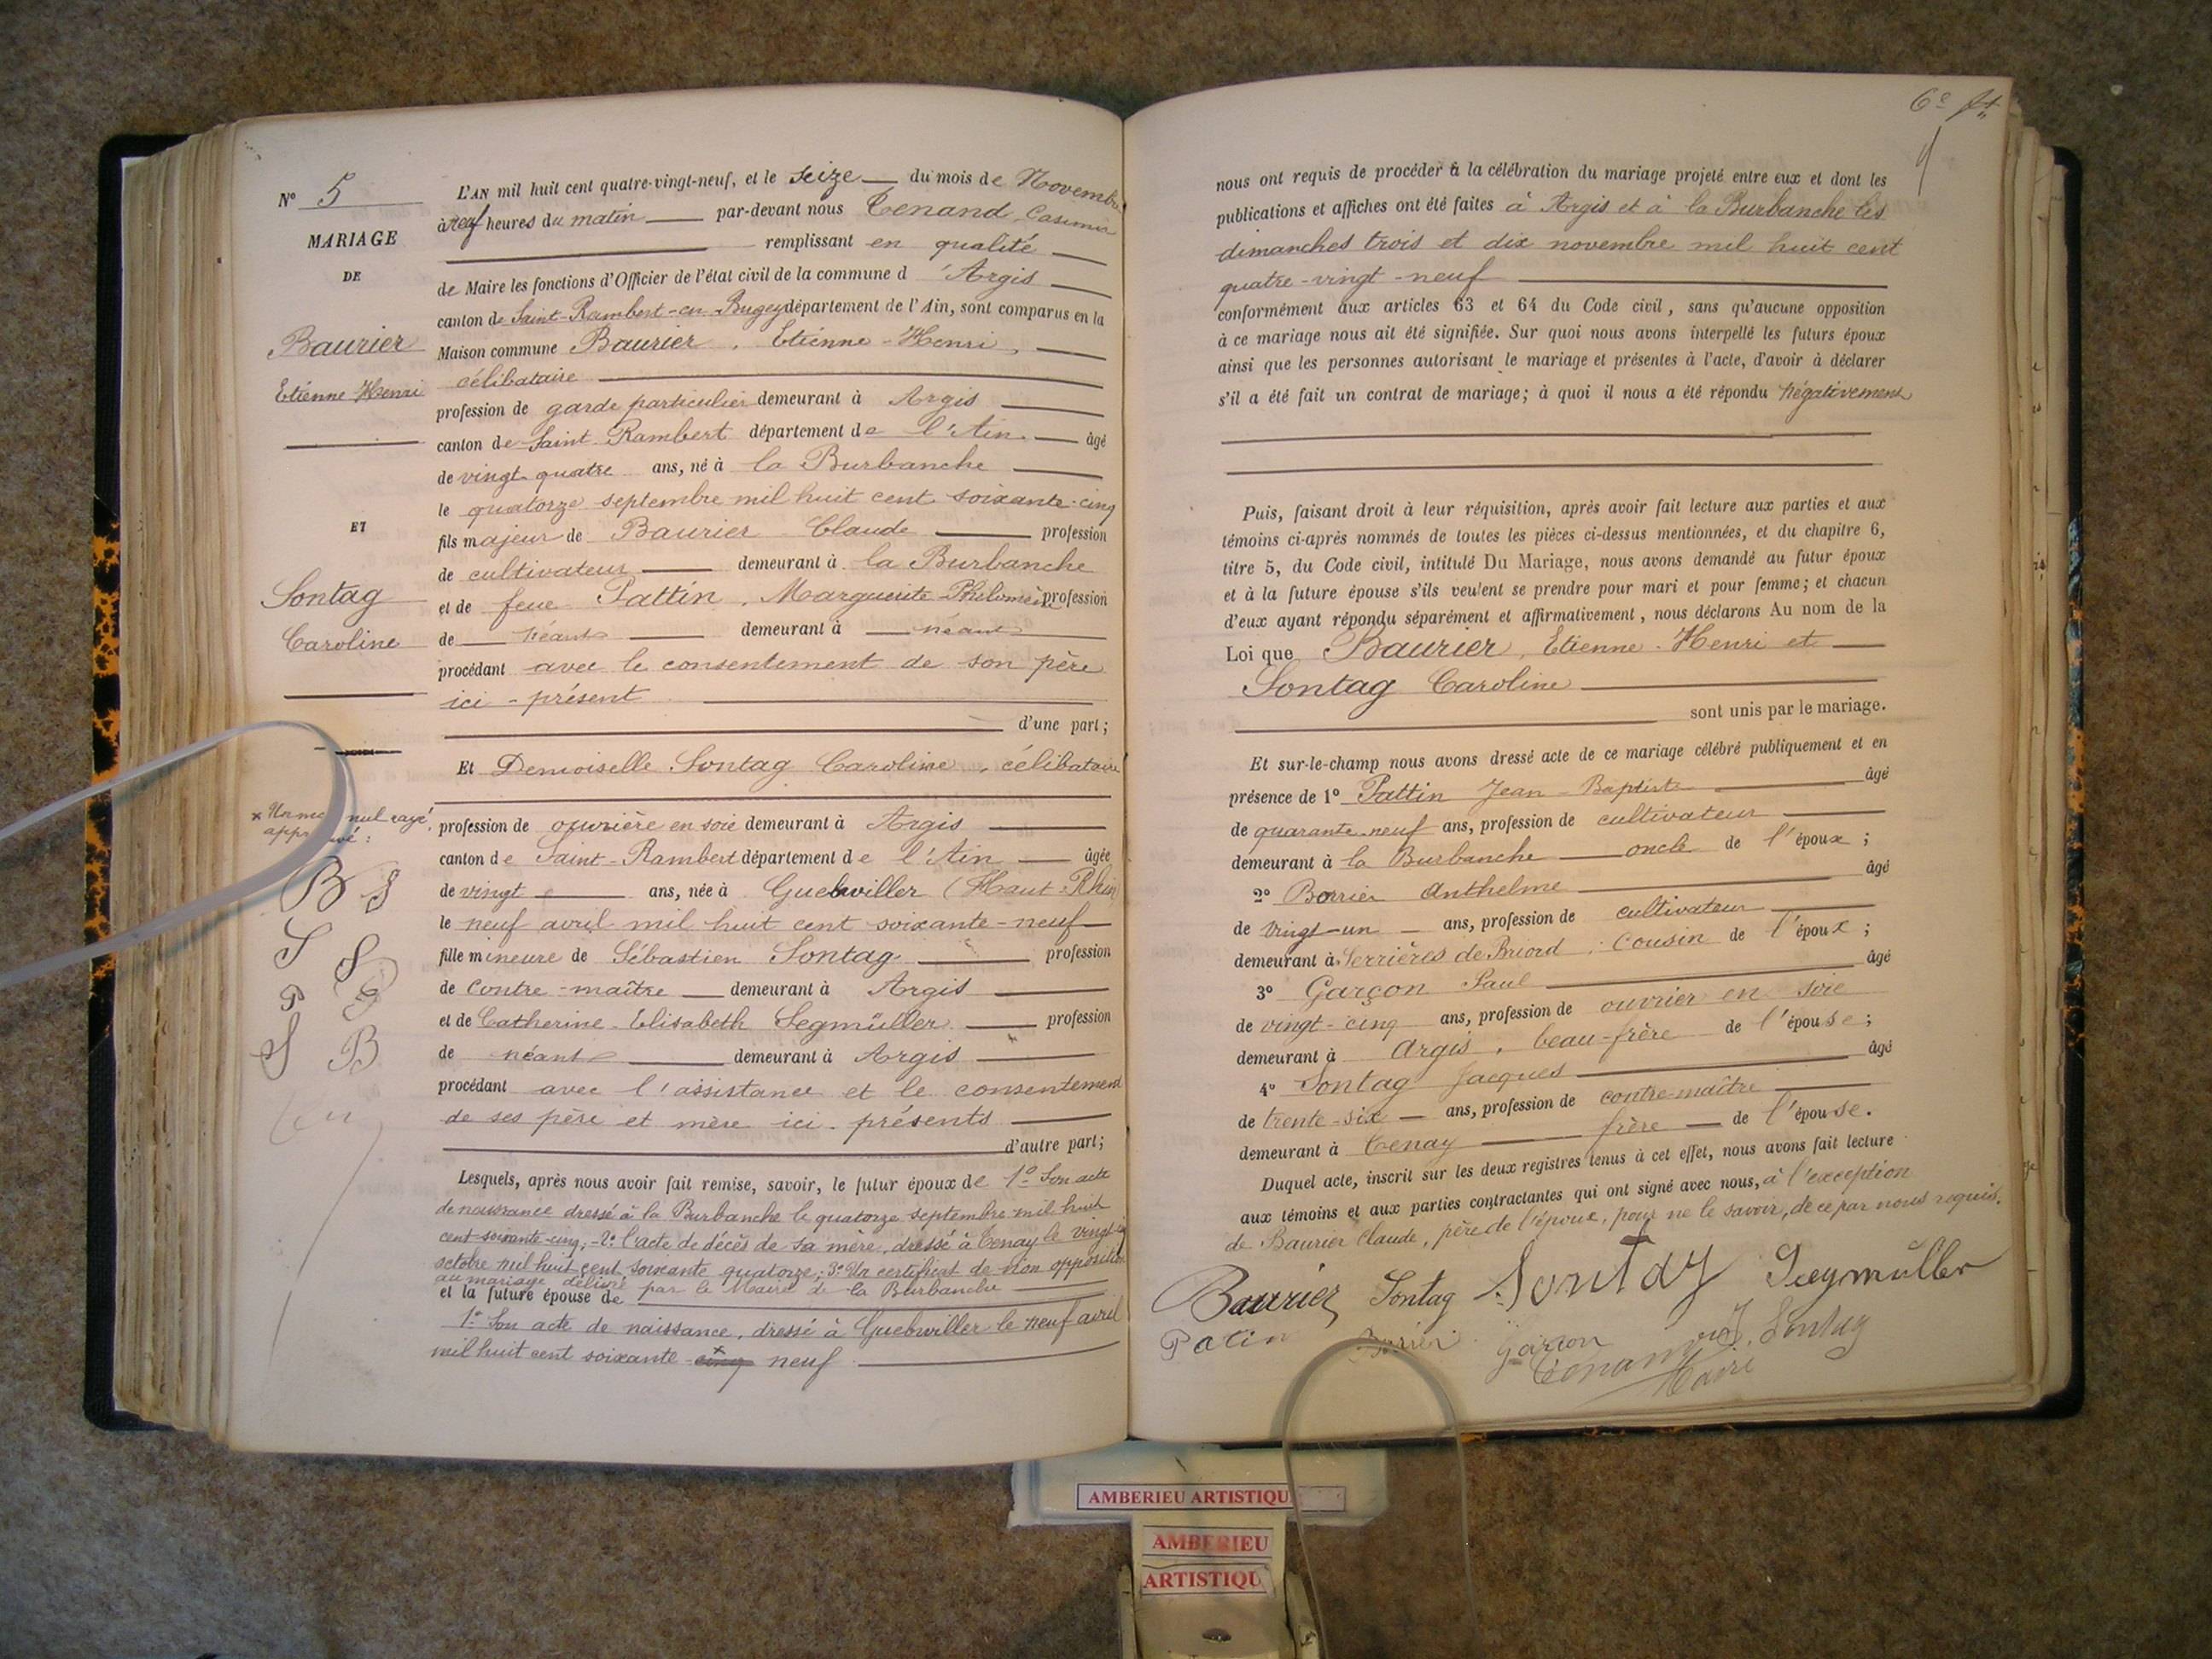 N° 5
MARIAGE
DE
Baurier
Etienne Henri
ET
Sontag
Caroline
nul rayé,
B S
S S
P G
S B
L'AN mil huit cent quatre-vingt-neuf, et le seize du mois de Novembre
à neuf heures du matin par-devant nous Tenand Casimir
remplissant en qualité
de Maire les fonctions d'Officier de l'état civil de la commune d'Argis
canton de Saint-Rambert-en-Bugey département de l'Ain, sont comparus en la
Maison commune Baurier, Etienne-Henri,
célibataire
profession de garde particulier demeurant à Argis
canton de Saint-Rambert département de l'Ain âgé
de vingt quatre ans, né à la Burbanche
le quatorze septembre mil huit cent soixante-cinq
fils majeur de Baurier Claude profession
de cultivateur demeurant à la Burbanche
et de feue Pattin, Marguerite-Philomène profession
de néant demeurant à néant
procédant avec le consentement de son père
ici-présent
d'une part;
Et Demoiselle Sontag Caroline, célibataire
profession de ouvrière en soie demeurant à Argis
canton de Saint-Rambert département de l'Ain âgée
de vingt ans, née à Guebwiller (Haut-Rhin)
le neuf avril mil huit cent soixante-neuf
fille mineure de Sébastien Sontag profession
de contre-maître demeurant à Argis
et de Catherine-Elisabeth Segmüller profession
de néant demeurant à Argis
procédant avec l'assistance et le consentement
de ses père et mère ici-présents
d'autre part;
Lesquels, après nous avoir fait remise, savoir, le futur époux de 1° Son acte
de naissance dressé à la Burbanche le quatorze septembre mil huit
cent soixante-cinq; 2° l'acte de décès de sa mère, dressé à Tenay le vingt
octobre mil huit cent soixante quatorze; 3° Un certificat de non opposition
au mariage délivré par le Maire de la Burbanche
et la future épouse de
1° Son acte de naissance, dressé à Guebwiller le neuf avril
mil huit cent soixante cinq neuf
6e ft
nous ont requis de procéder à la célébration du mariage projeté entre eux et dont les
publications et affiches ont été faites à Argis et à la Burbanche les
dimanches trois et dix novembre mil huit cent
quatre-vingt-neuf
conformément aux articles 63 et 64 du Code civil, sans qu'aucune opposition
à ce mariage nous ait été signifiée. Sur quoi nous avons interpellé les futurs époux
ainsi que les personnes autorisant le mariage et présentes à l'acte, d'avoir à déclarer
s'il a été fait un contrat de mariage; à quoi il nous a été répondu négativement
Puis, faisant droit à leur réquisition, après avoir fait lecture aux parties et aux
témoins ci-après nommés de toutes les pièces ci-dessus mentionnées, et du chapitre 6,
titre 5, du Code civil, intitulé Du Mariage, nous avons demandé au futur époux
et à la future épouse s'ils veulent se prendre pour mari et pour femme; et chacun
d'eux ayant répondu séparément et affirmativement, nous déclarons Au nom de la
Loi que Baurier, Etienne-Henri et
Sontag Caroline
sont unis par le mariage.
Et sur-le-champ nous avons dressé acte de ce mariage célébré publiquement et en
présence de 1° Pattin Jean-Baptiste âgé
de quarante-neuf ans, profession de cultivateur
demeurant à la Burbanche oncle de l'époux;
2° Borrier Anthelme âgé
de vingt-un ans, profession de cultivateur
demeurant à Serrières de Briord, cousin de l'époux;
3° Garçon Paul âgé
de vingt-cinq ans, profession de ouvrier en soie
demeurant à Argis, beau-frère de l'épouse;
4° Sontag Jacques âgé
de trente-six ans, profession de contre-maître
demeurant à Tenay frère de l'épouse.
Duquel acte, inscrit sur les deux registres tenus à cet effet, nous avons fait lecture
aux témoins et aux parties contractantes qui ont signé avec nous, à l'exception
de Baurier Claude, père de l'époux, pour ne le savoir, de ce par nous requis.
Baurier Sontag Sontag Seegmüller
Patin Borrier Garçon J. Sontag
Tenand
Maire
AMBERIEU ARTISTIQU
AMBERIEU
ARTISTIQU